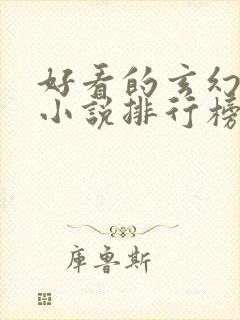 好看的玄幻
小说排行榜
庫鲁斯